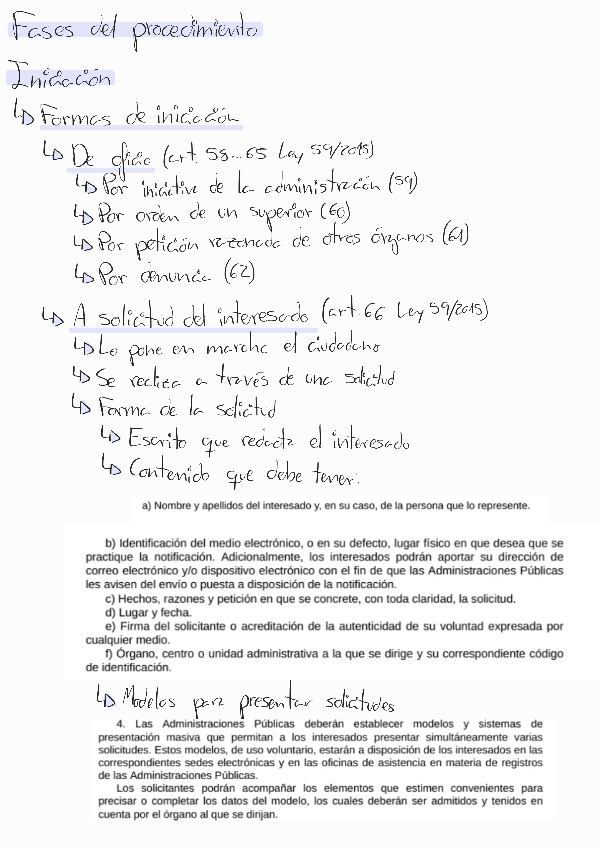 Fases del procedimiento
Iniciación
↳ Formas de iniciación
↳ De oficio (art. 58...65 Ley 59/2015)
↳ Por iniciativa de la administración (59)
↳ Por orden de un superior (60)
↳ Por petición razonada de otros órganos (61)
↳ Por denuncia (62)
↳ A solicitud del interesado (art. 66 Ley 59/2015)
↳ Lo pone en marcha el ciudadano
↳ Se realiza a través de una solicitud
↳ Forma de la solicitud
↳ Escrito que redacta el interesado
↳ Contenido que debe tener:
a) Nombre y apellidos del interesado y, en su caso, de la persona que lo represente.
b) Identificación del medio electrónico, o en su defecto, lugar físico en que desea que se
practique la notificación. Adicionalmente, los interesados podrán aportar su dirección de
correo electrónico y/o dispositivo electrónico con el fin de que las Administraciones Públicas
les avisen del envío o puesta a disposición de la notificación.
c) Hechos, razones y petición en que se concrete, con toda claridad, la solicitud.
d) Lugar y fecha.
e) Firma del solicitante o acreditación de la autenticidad de su voluntad expresada por
cualquier medio.
f) Órgano, centro o unidad administrativa a la que se dirige y su correspondiente código
de identificación.
↳ Modelos para presentar solicitudes
4. Las Administraciones Públicas deberán establecer modelos y sistemas de
presentación masiva que permitan a los interesados presentar simultáneamente varias
solicitudes. Estos modelos, de uso voluntario, estarán a disposición de los interesados en las
correspondientes sedes electrónicas y en las oficinas de asistencia en materia de registros
de las Administraciones Públicas.
Los solicitantes podrán acompañar los elementos que estimen convenientes para
precisar o completar los datos del modelo, los cuales deberán ser admitidos y tenidos en
cuenta por el órgano al que se dirijan.